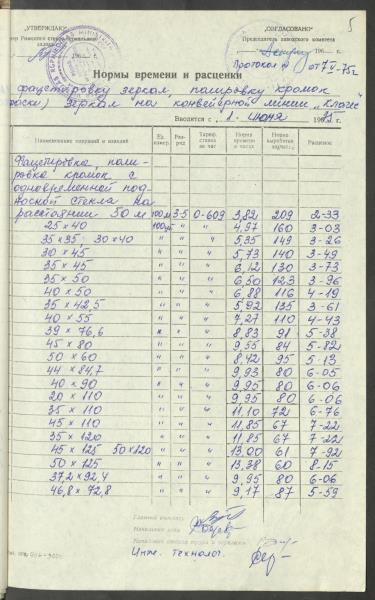 „УТВЕРЖДАЮ"
„СОГЛАСОВАНО"
5
Председатель заводского комитета
196 г.
196 г.
Протокол от 7/V-75г
Нормы времени и расценки
фацетировку зеркал, полировку кромок
зеркал на конвейерной линии „Класс"
Вводится с „ 1. июня 196 г.
Наименование операций и изделий
Ед. измер.
Раз-ряд
Тариф. ставка за час
Норма времени в часах
Норма выработки
Расценок
Фацетировка, поли-
ровка кромок с
одновременной под-
ноской стекла на
расстоянии 50 м 100м 3-5 0-609 3,82 209 2-33
25 х 40 100шт " " 4,97 160 3-03
35 х 35; 30 х 40 " " " 5,35 149 3-26
30 х 45 " " " 5,73 140 3-49
35 х 45 " " " 6,12 130 3-73
35 х 50 " " " 6,50 123 3-96
40 х 50 " " " 6,88 116 4-19
35 х 42,5 " " " 5,92 135 3-61
40 х 55 " " " 7,27 110 4-43
39 х 76,6 " " " 8,83 91 5-38
45 х 80 " " " 9,55 84 5-82
50 х 60 " " " 8,42 95 5-13
44 х 84,7 " " " 9,93 80 6-05
40 х 90 " " " 9,95 80 6-06
20 х 110 " " " 9,95 80 6-06
35 х 110 " " " 11,10 72 6-76
45 х 110 " " " 11,85 67 7-22
35 х 120 " " " 11,85 67 7-22
45 х 125 50 х 120 " " " 13,00 61 7-92
50 х 125 " " " 13,38 60 8-15
37,2 х 92,4 " " " 9,95 80 6-06
46,8 х 72,8 " " " 9,17 87 5-59
Главный инженер
Начальник цеха
Начальник отдела труда и зарплаты
Инж. технолог